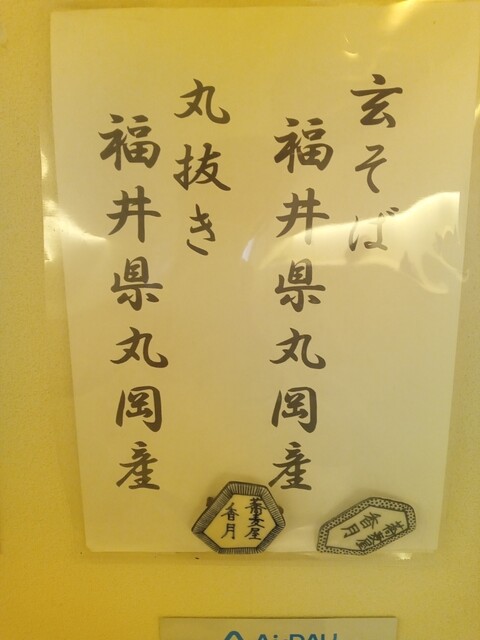 玄そば
福井県丸岡産
丸抜き
福井県丸岡産
蕎麦屋
香月
蕎麦屋
香月